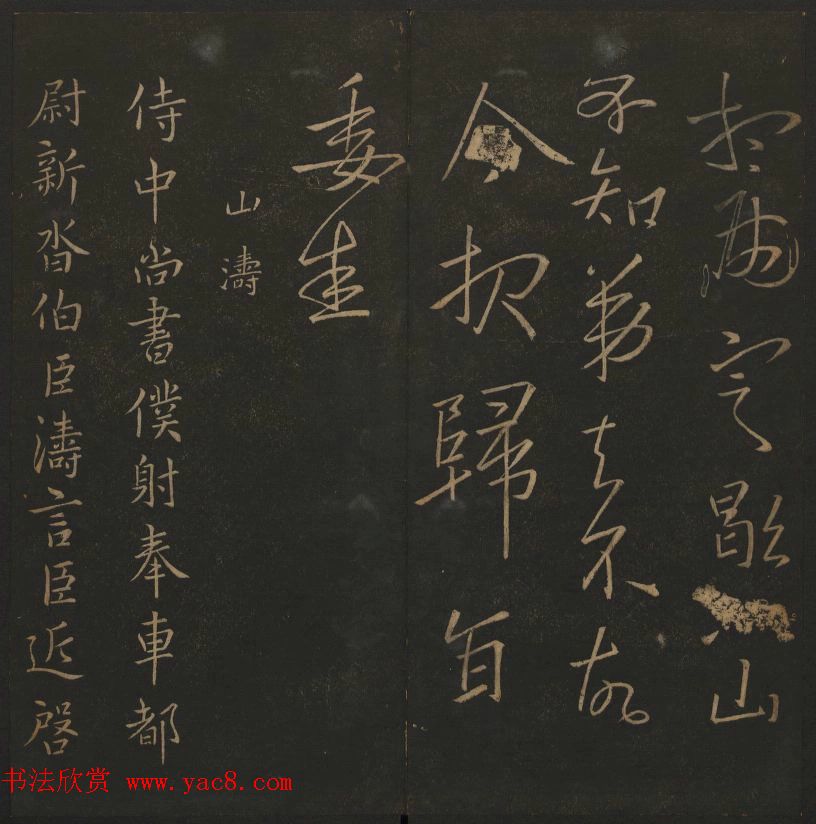 定歇山
不知弟去不故
令歸
委
山濤
侍中尚書僕射奉車都
尉新沓伯臣濤言臣近啓
书法欣赏 www.yac8.com